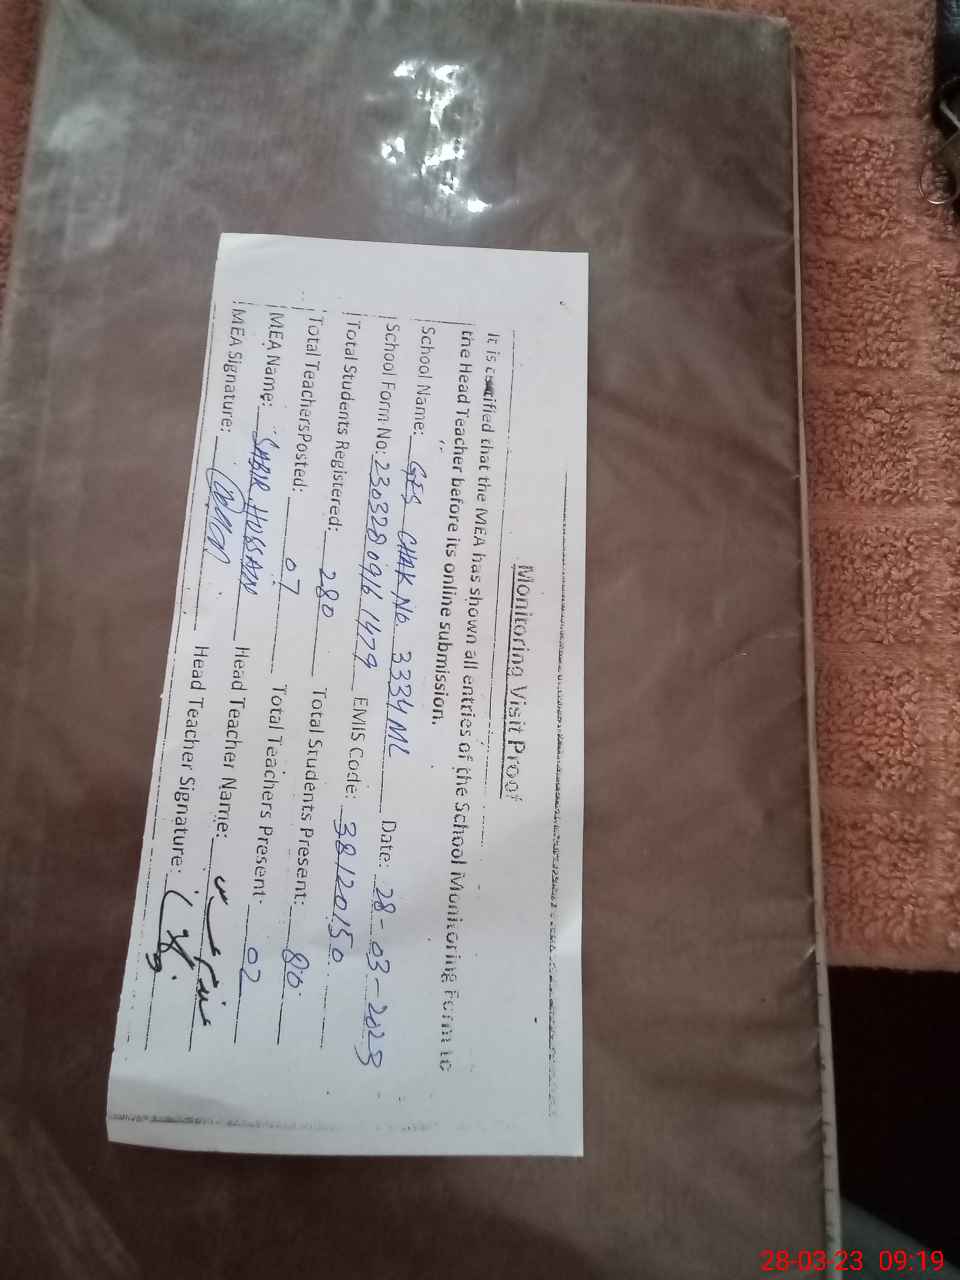 Monitoring Visit Proof
It is certified that the MEA has shown all entries of the School Monitoring Form to
the Head Teacher before its online submission.
School Name: GES CHAK No 3334ML Date: 28-03-2023
School Form No: 230328 0916 1479 EMIS Code: 38120150
Total Students Registered: 280 Total Students Present: 80
Total Teachers Posted: 07 Total Teachers Present: 02
MEA Name: SABIR HUSSAIN Head Teacher Name:
MEA Signature: Head Teacher Signature:
28-03-23 09:19